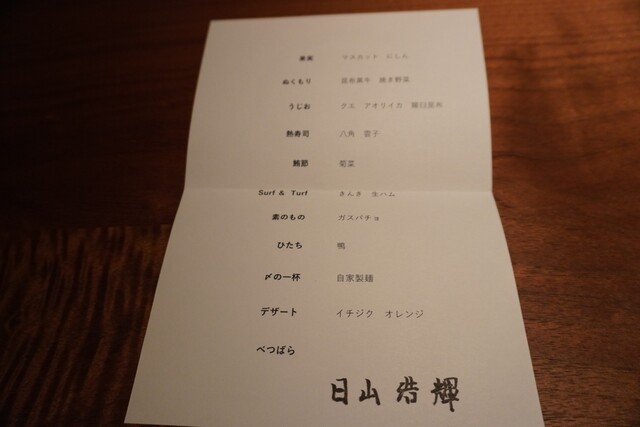 マスカット　にしん
ぬくもり　昆布森牛　焼き野菜
うしお　クエ　アオリイカ　羅臼昆布
熱寿司　八角　雲子
鮪節　菊菜
Surf & Turf　きんき　生ハム
素のもの　ガスパチョ
ひたち　鴨
〆の一杯　自家製麺
デザート　イチジク　オレンジ
べつばら
日山 浩輝